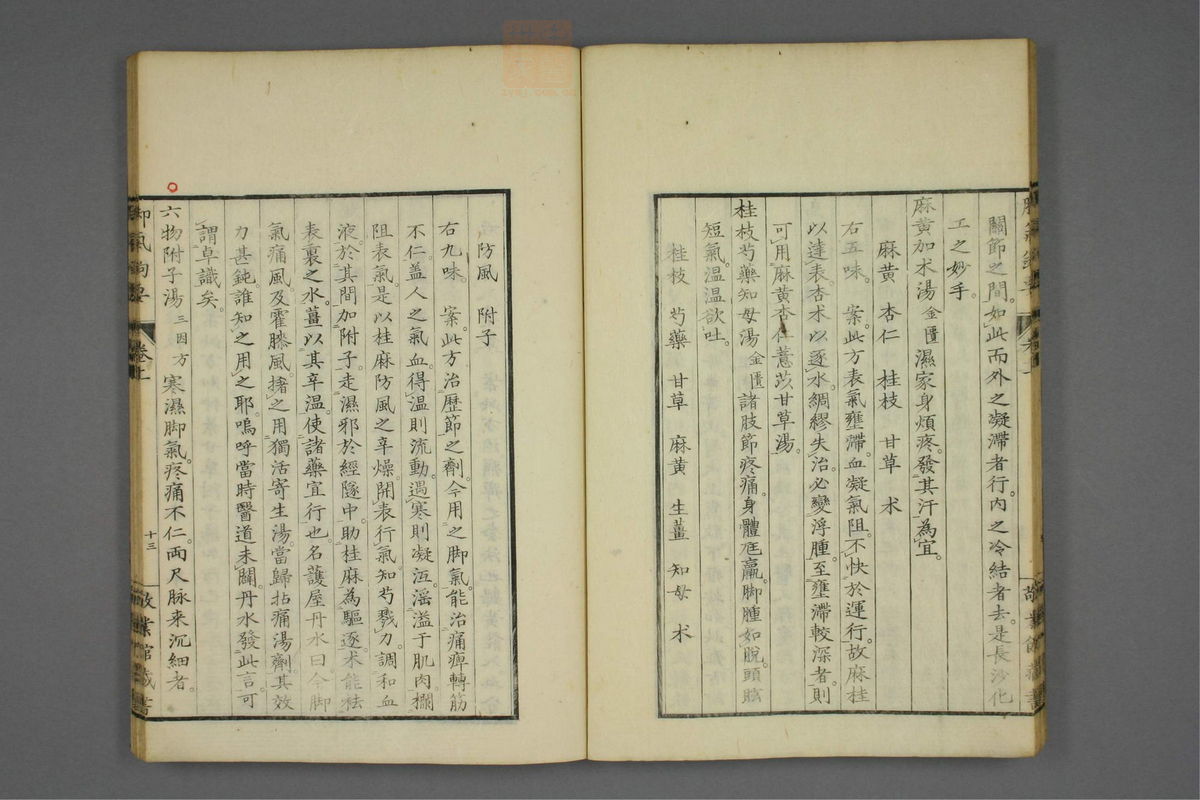 關節之間。如此而外之凝滯者行。內之冷結者去。是長沙化
工之妙手。
麻黃加术湯 金匱 濕家身煩疼。發其汗為宜。
麻黃 杏仁 桂枝 甘草 术
右五味。 案。此方表氣壅滯。血凝氣阻。不快於運行。故麻桂
以達表。杏术以逐水。綢繆失治。必變浮腫。至壅滯較深者。則
可用麻黃杏仁薏苡甘草湯。
桂枝芍藥知母湯 金匱 諸肢節疼痛。身體尫羸。脚腫如脫。頭眩
短氣。溫溫欲吐。
桂枝 芍藥 甘草 麻黃 生薑 知母 术
防風 附子
右九味。 案。此方治歷節之劑。今用之脚氣。能治痛痺轉筋
不仁。蓋人之氣血。得溫則流動。遇寒則凝沍。滛溢于肌肉。擱
阻表氣。是以桂麻防風之辛燥。開表行氣。知芍戮力。調和血
液。於其間加附子。走濕邪於經隧中。助桂麻為驅逐。术能祛
表裏之水。薑以其辛溫。使諸藥宜行也。名護屋丹水曰。今脚
氣痛風及霍膝風。搘之用獨活寄生湯。當歸拈痛湯。劑其效
力甚鈍。誰知之用之耶。嗚呼當時醫道未闢。丹水發此言。可
謂卓識矣。
六物附子湯 三因方 寒濕脚氣。疼痛不仁。兩尺脉來沉細者。
卷上
十三